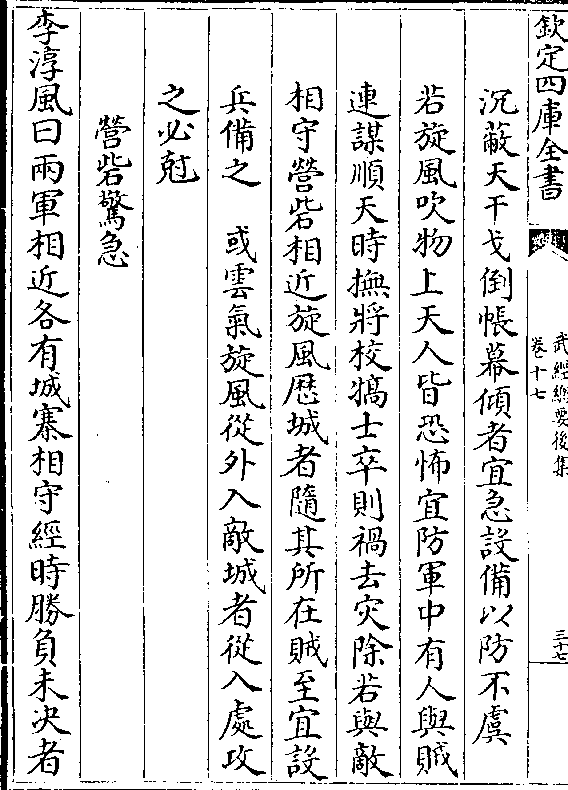 欽定四庫全書
武經總要後集
卷十七
三十七
沉蔽天干戈倒帳幕傾者宜急設備以防不虞
若旋風吹物上天人皆恐怖宜防軍中有人與賊
連謀順天時撫將校犒士卒則禍去灾除若與敵
相守營砦相近旋風歴城者隨其所在賊至宜設
兵備之　或雲氣旋風從外入敵城者從入處攻
之必尅
營砦驚急
李淳風曰兩軍相近各有城寨相守經時勝負未决者